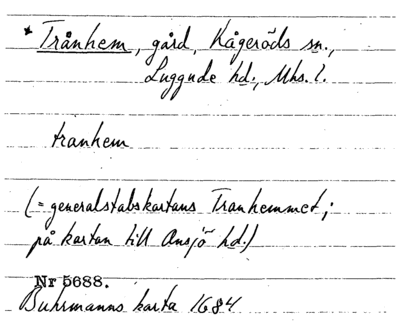 * Trånhem, gård, Kågeröds sn.,
Luggude hd., Mhs. l.
tranhem
(= generalstabskartans Tranhemmet;
på kartan till Onsjö hd.)
Nr 5688.
Buhrmanns karta 1684